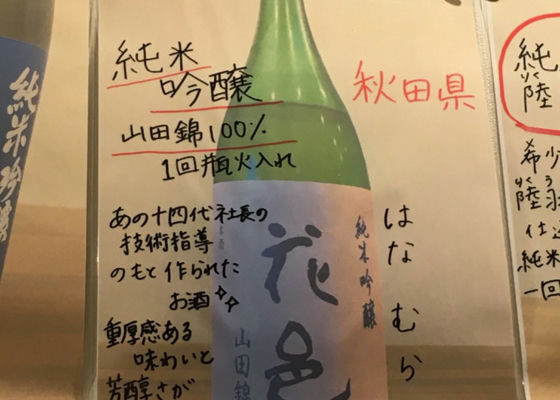 純米
吟醸
山田錦100%
1回瓶火入れ
秋田県
あの十四代社長の
技術指導
のもと作られた
お酒
重厚感ある
味わいと
芳醇さが
はなむら
純米吟醸
花邑
山田錦
純米吟醸
純
りく
陸
希少
りくう
陸羽
仕込
純米
一回